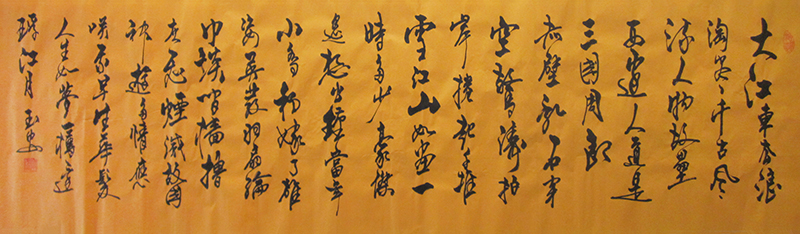 大江東去浪
淘尽千古风
流人物故壘
西边人道是
三国周郎
赤壁乱石穿
空驚濤拍
岸捲起千堆
雪江山如画一
時多少豪傑
遥想公瑾當年
小喬初嫁了雄
姿英发羽扇綸
巾談笑檣櫓
灰飛煙滅故國
神遊多情應
笑我早生華髮
人生如夢一樽還
酹江月